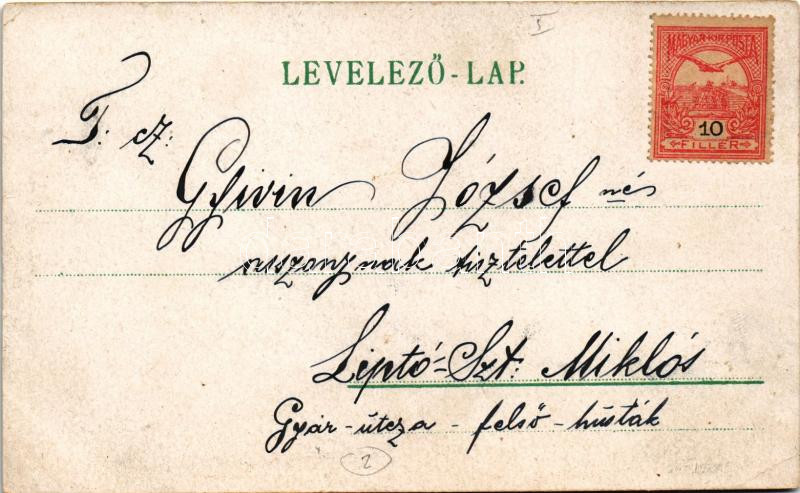 LEVELEZŐ-LAP.
MAGYAR KIR. POSTA
10
FILLÉR
T. cz.
József né
asszonynak tisztelettel
Liptó-Szt. Miklós
Gyár-útcza - felső-hústák
2